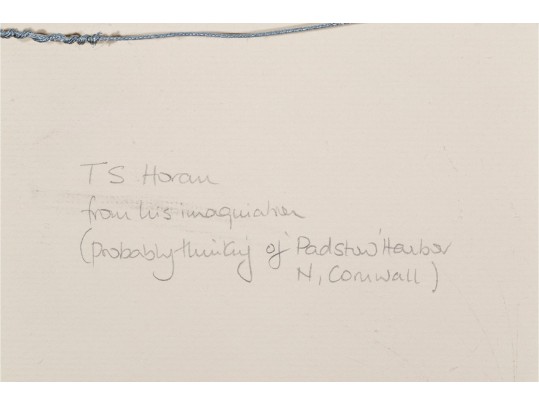 TS Horan
from his imagination
(probably thinking of Padstow Harbour
N, Cornwall)